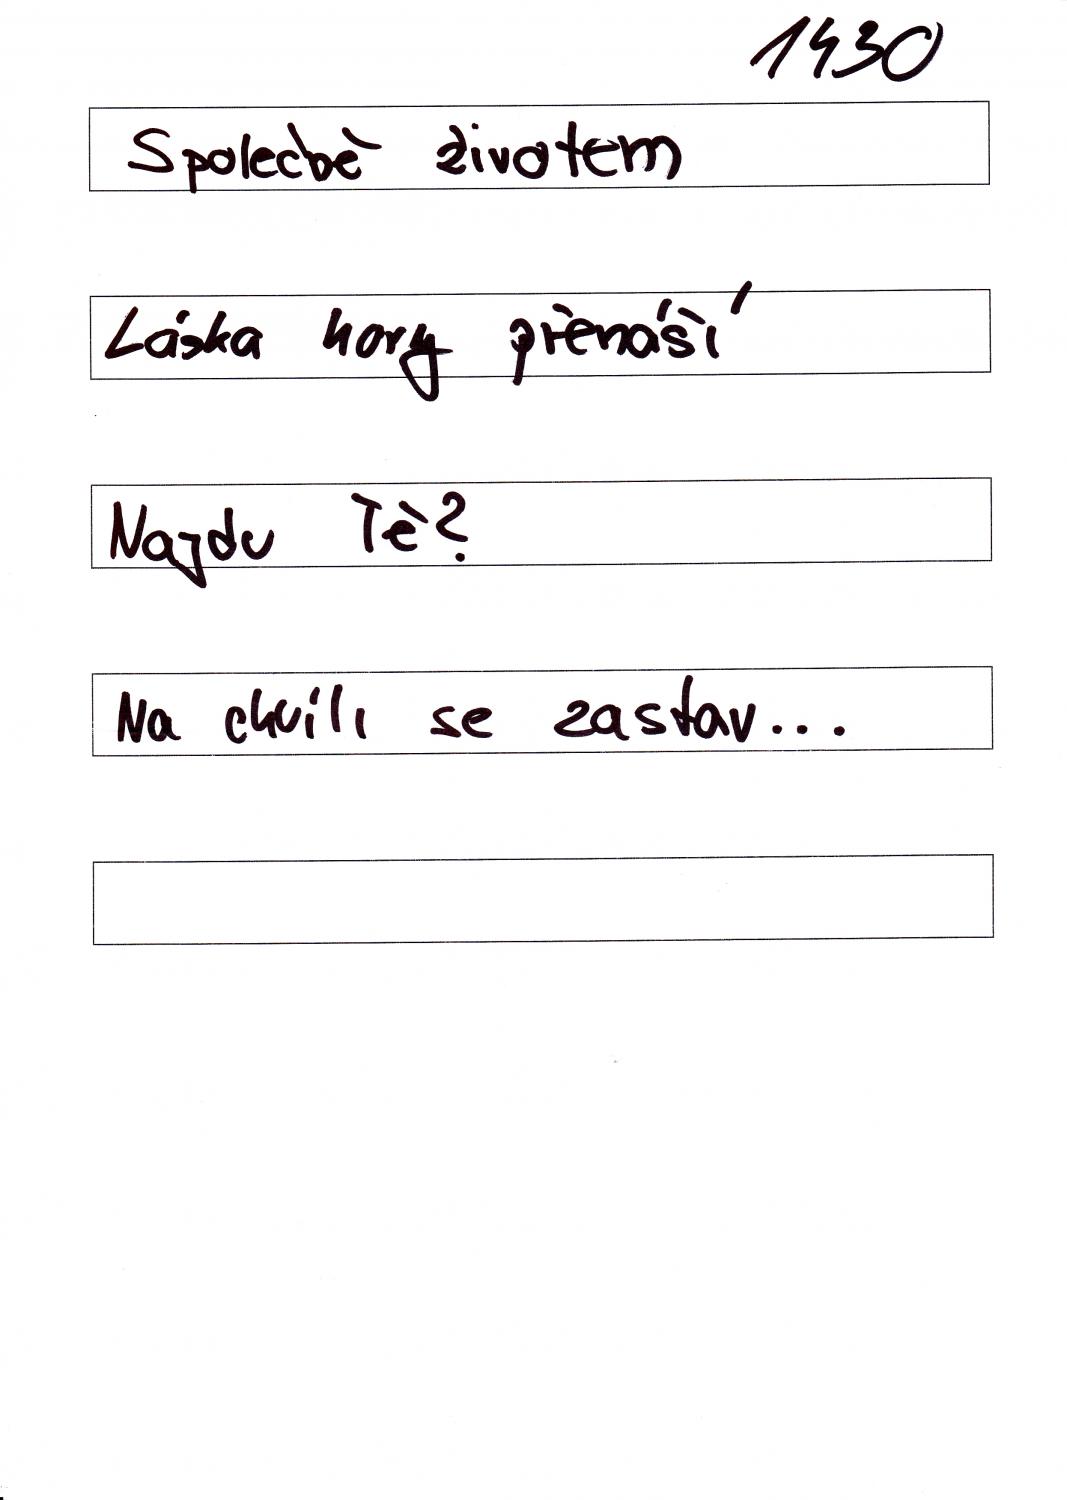 1430
Společně životem
Láska hory přenáší
Najdu Tě?
Na chvíli se zastav...